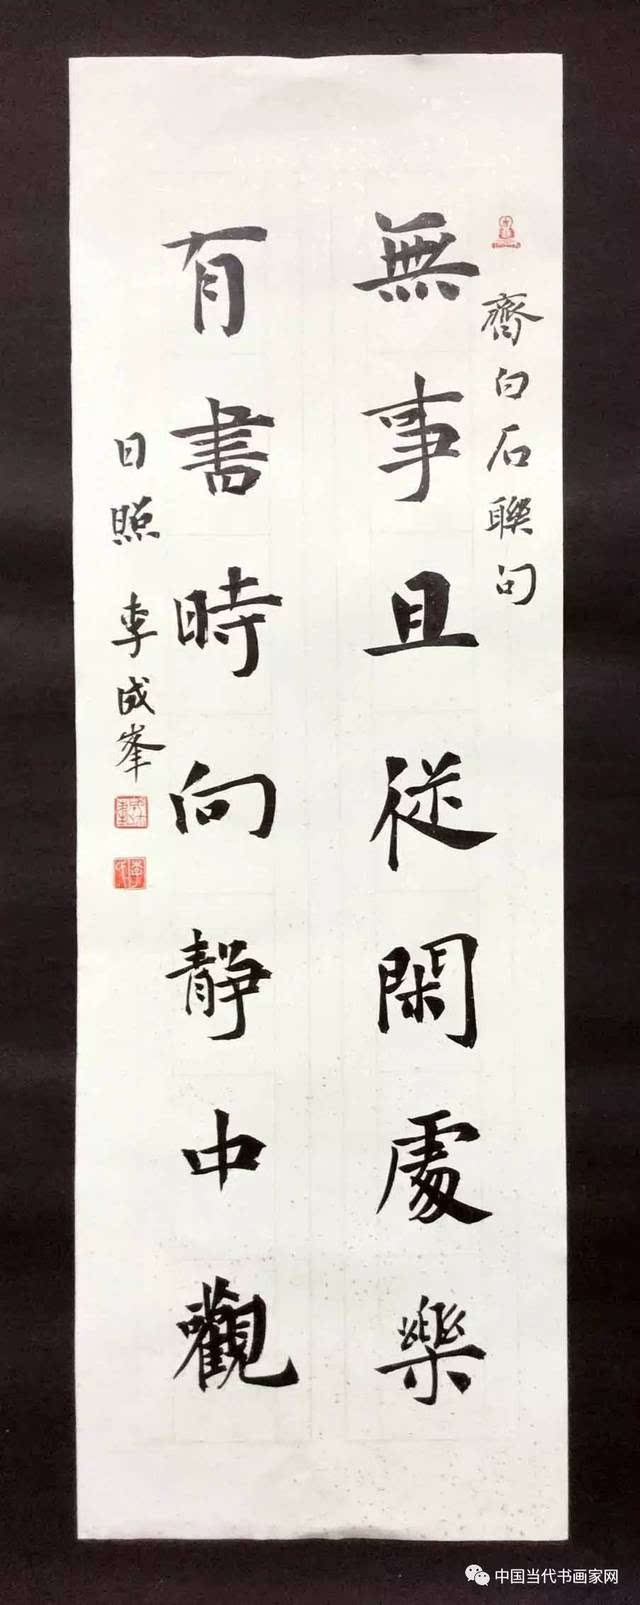 齊白石聯句
無事且從閑處樂
有書時向靜中觀
日照 李成峯
中国当代书画家网